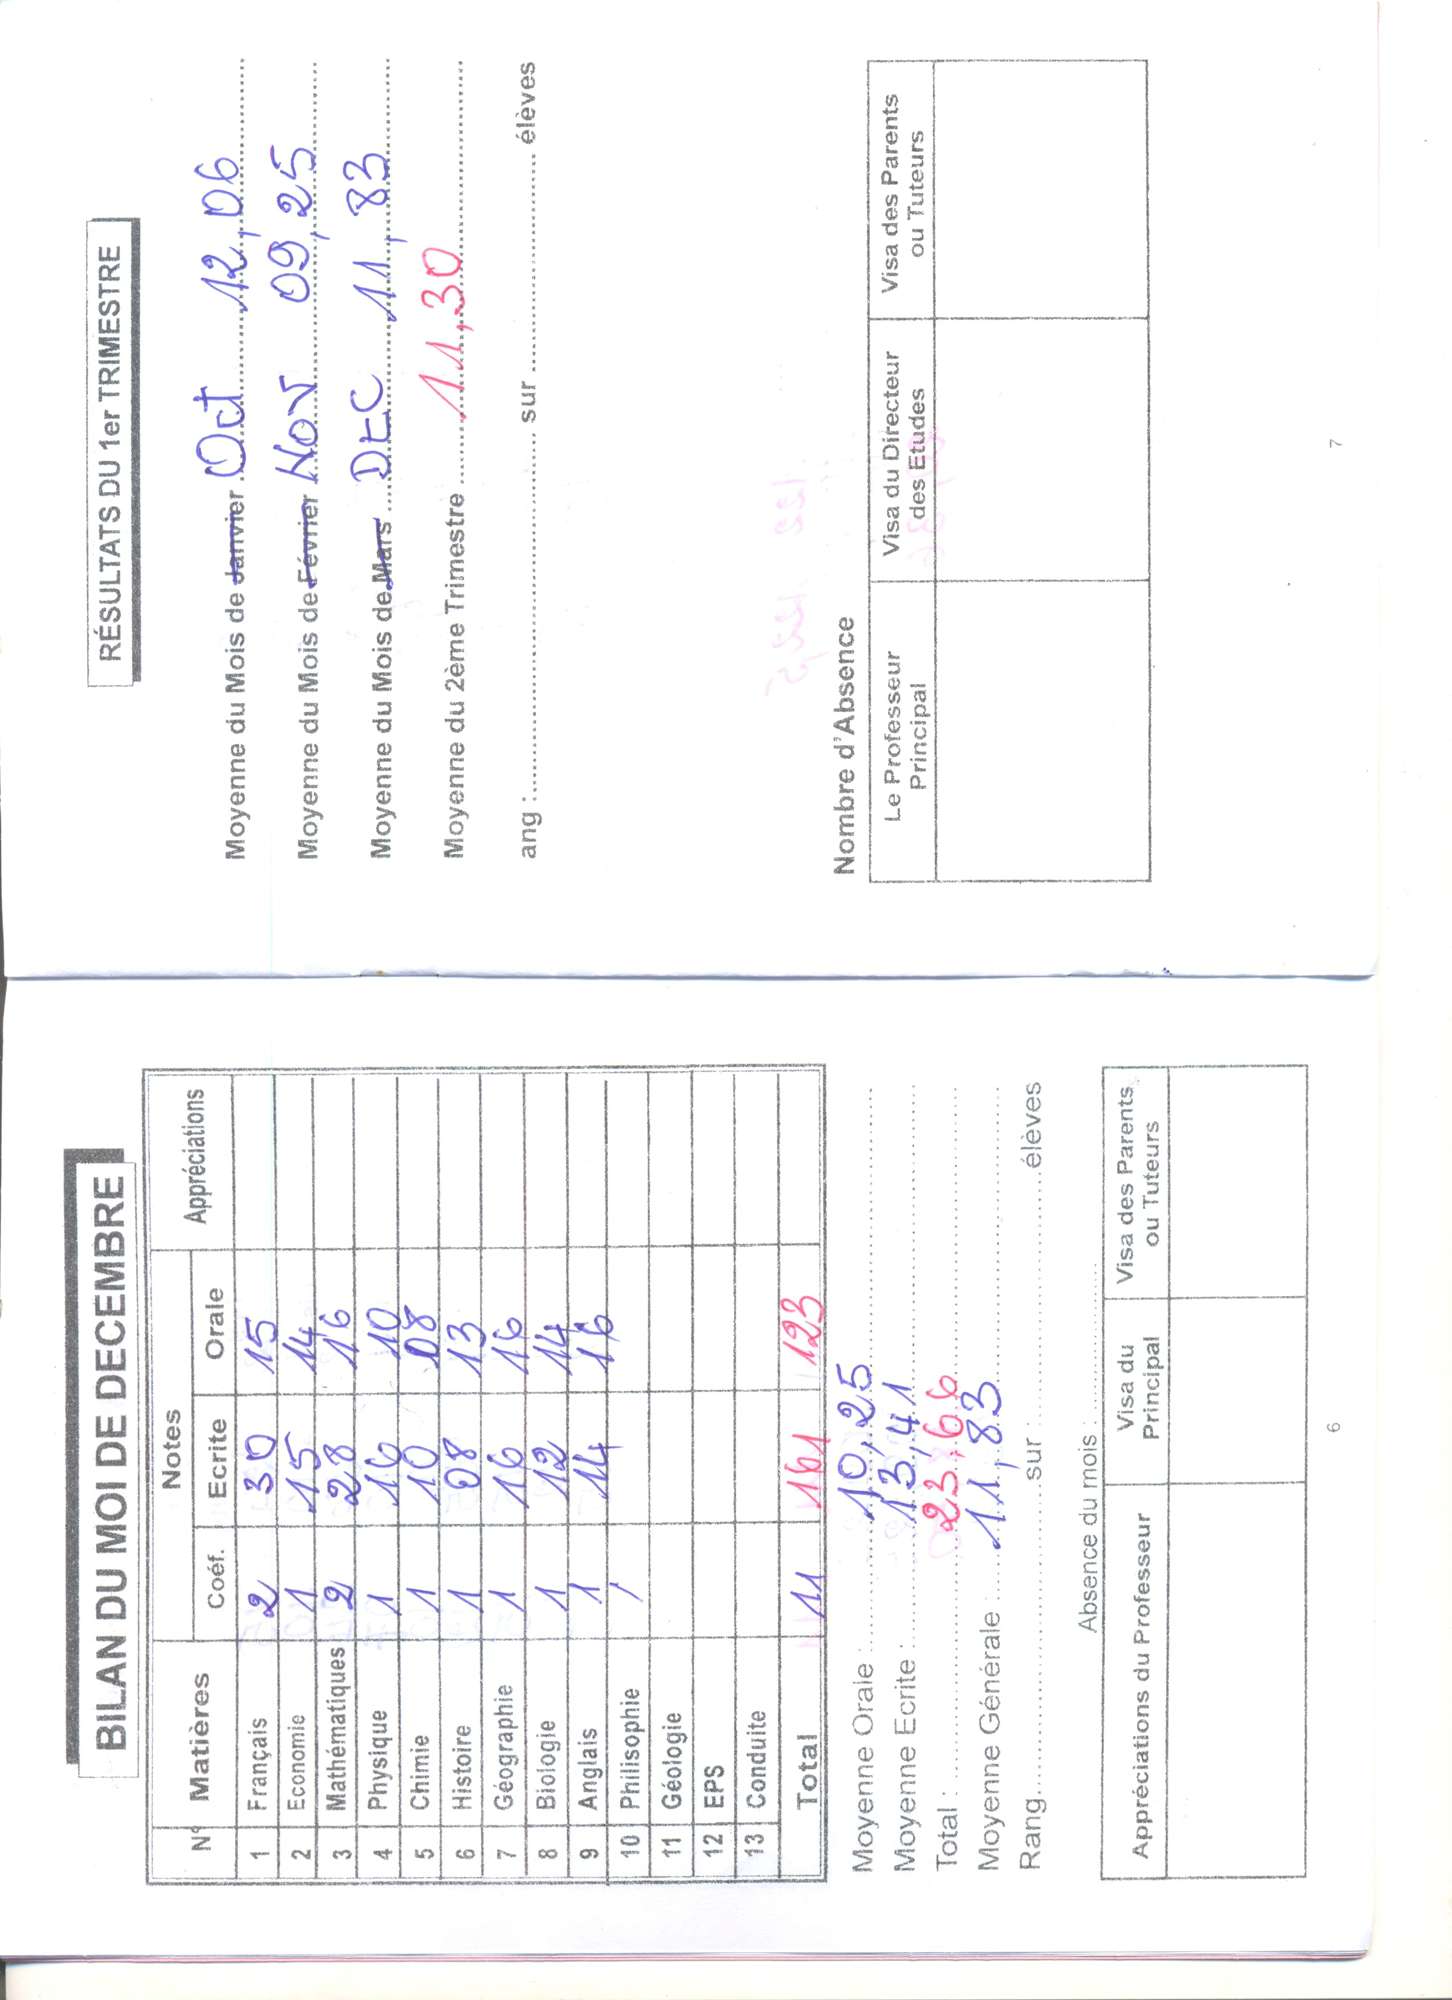 BILAN DU MOI DE DECEMBRE
N° Matières Notes Appréciations
Coéf. Ecrite Orale
1 Français 2 30 15
2 Economie 1 15 14
3 Mathématiques 2 28 16
4 Physique 1 16 10
5 Chimie 1 10 08
6 Histoire 1 08 13
7 Géographie 1 16 16
8 Biologie 1 12 14
9 Anglais 1 14 16
10 Philisophie
11 Géologie
12 EPS
13 Conduite
Total 11 161 123
Moyenne Orale : 10,25
Moyenne Ecrite : 13,41
Total : 23,66
Moyenne Générale : 11,83
Rang sur élèves
Absence du mois :
Appréciations du Professeur Visa du Principal Visa des Parents ou Tuteurs
6
RÉSULTATS DU 1er TRIMESTRE
Moyenne du Mois de Janvier Oct 12,06
Moyenne du Mois de Février NOV 09,25
Moyenne du Mois de Mars DEC 11,83
Moyenne du 2ème Trimestre 11,30
ang : sur élèves
Nombre d'Absence
Le Professeur Principal Visa du Directeur des Etudes Visa des Parents ou Tuteurs
7